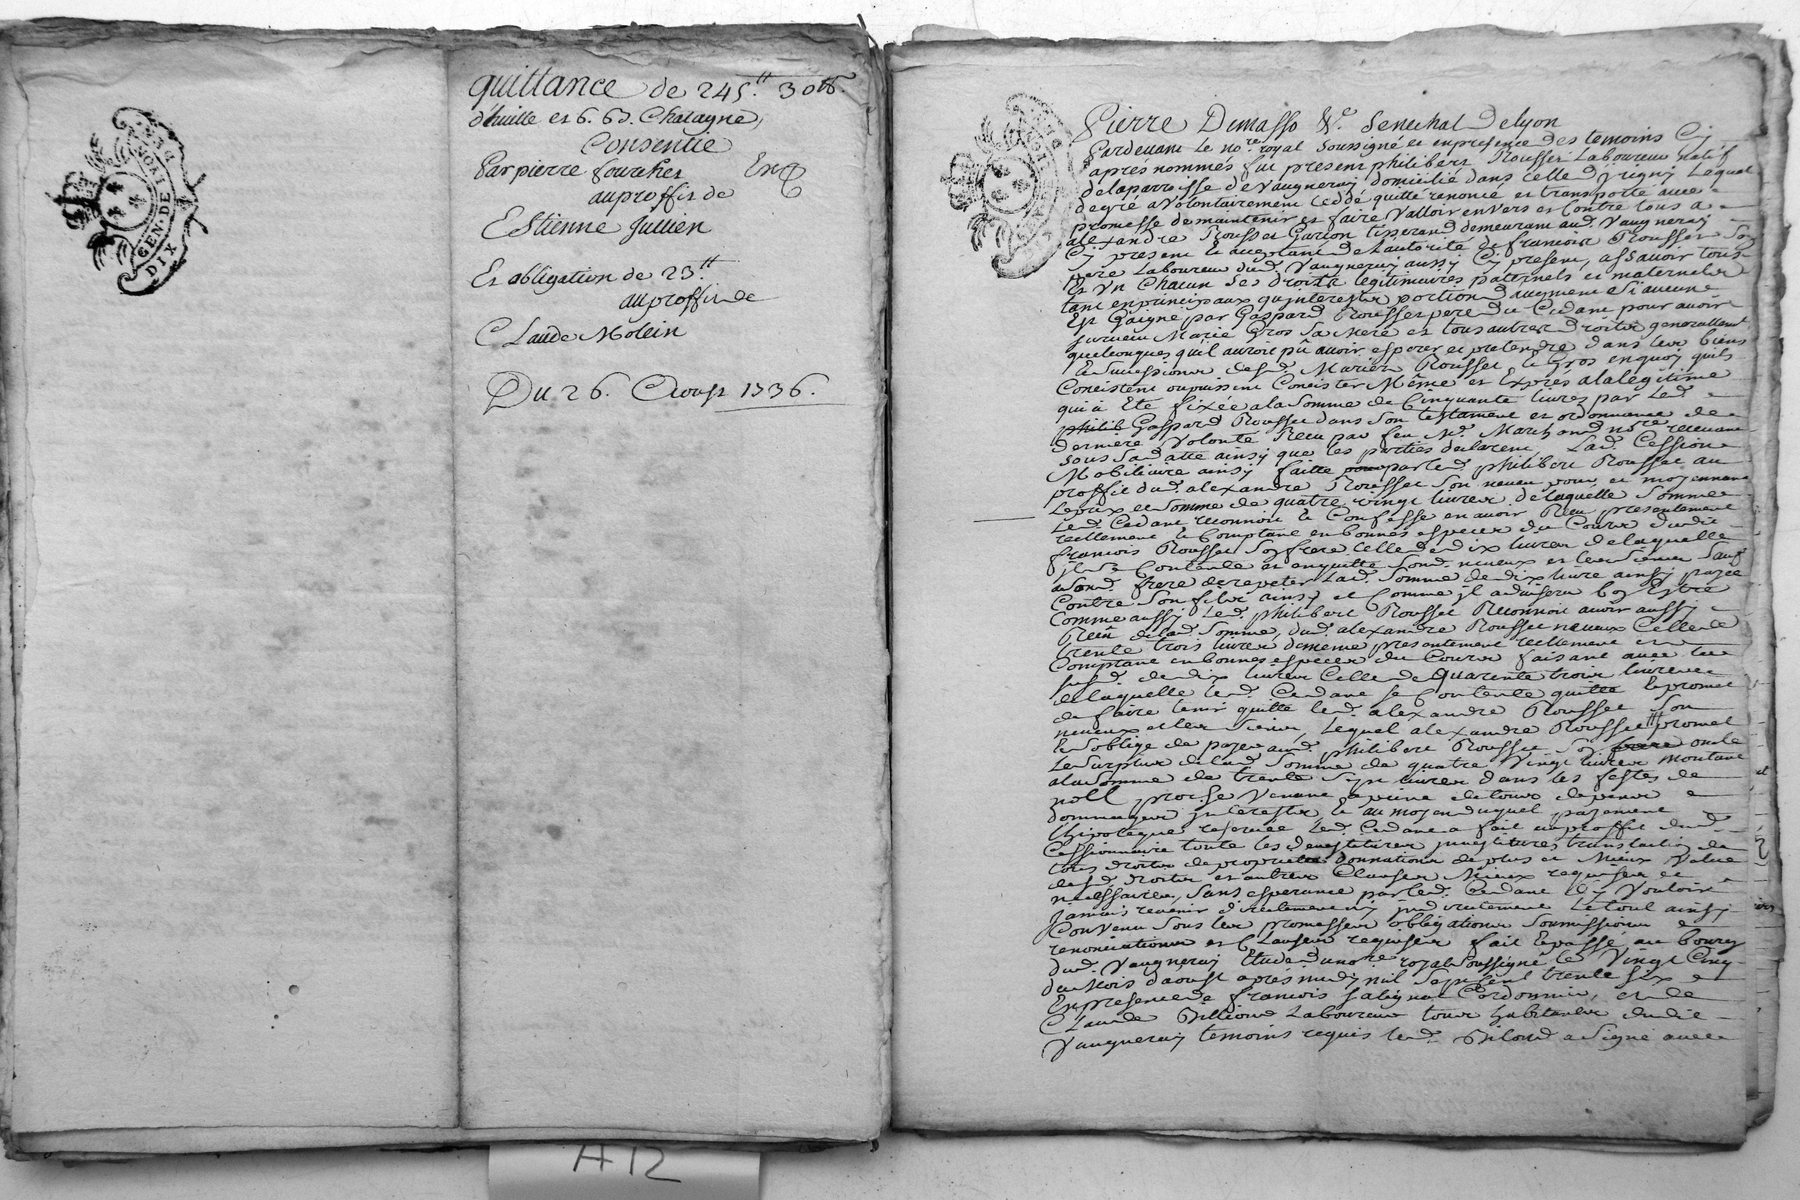 GEN. DE LYON
DIX DEN.
quittance de 245.tt 3 ott.
d'huille et 6. bd. Chatagne,
Consentie
Par pierre fourcher
au proffit de
Estienne Jullien
Et obligation de 23.tt
au proffit de
Claude Mollin
Du 26. Aoust 1736.
A 12
Pierre Dumasso Sr. Senechal De Lyon
Pardevant le nore. royal soussigné et en presence des temoins Cy
après nommés fut present philibert Rousset Laboureur natif
de la parroisse de Vaugneray, domicilié dans celle d'jrigny Lequel
de gré a Volontairement ceddé quitté renoncé et transporté avec
promesse de maintenir et faire Valloir envers et Contre tous a
alexandre Rousset Garçon tisserand demeurant aud. Vaugneray
Cy present et acceptant de L'autorité de francois Rousset Son
pere Laboureur dud. Vaugneray aussy Cy present, assavoir tous
Et Vn Chacun Ses droits Legitimaires paternels et maternels
tant en principaux qu'interests portion d'augment Si aucun
Est Gaigné par Gaspard Rousset pere du Cedant pour avoir
survecu Marie Gros sa mere et tous autres droits generallement
quelconques qu'il auroit pû avoir esperer et pretendre dans les biens
et successions desd. Mariés Rousset et Gros en quoy qu'ils
Consistent ou puissent Consister Même et Exprès a la Legitime
qui a Eté fixée a la somme de Cinquante livres par Led.
philib Gaspard Rousset dans Son testament et ordonnance de
derniere Volonté Receu par feu Me. Marchand nore recevant
sous Sa datte ainsy que les parties declarent, Lad. Cession
Mobiliaire ainsy faitte par led. philibert Rousset au
proffit dud. alexandre Rousset Son neveu pour et moyennant
Le prix et somme de quatre vingt livres de laquelle Somme
Led. Cedant reconnoit et Confesse en avoir Receu presentement
reellement et Comptant en bonnes especes du Cours dudit
francois Rousset Son frere Celle de dix livres de laquelle
il se Contente et en quitte Sond. neveux et les siens Sauf
a Sond. frere de repeter Lad. Somme de dix livre ainsy payée
Contre Son fils ainsy et Comme il avisera bon Estre
Comme aussy Led. philibert Rousset Reconnoit avoir aussy
Receu de lad. Somme, dud. alexandre Rousset neveux Celle de
trente trois livres de meme presentement reellement et
Comptant en bonnes especes du Cours faisant avec les
susd. de dix livres Celle de Quarente trois livres
de laquelle led. Cedant se Contente quitte et promet
de faire tenir quitte led. alexandre Rousset Son
neveux et les Siens, Lequel alexandre Rousset promet
et s'oblige de payer aud. philibert Rousset Son frere oncle
Le Surplus de lad. Somme de quatre Vingt livres montant
a la Somme de trente Sept livres dans les festes de
noël proche Venant a peine de tous depens
dommages interests et au moyen duquel payement
L'hipoteque reservée led. Cedant a fait au proffit dud.
Cessionnaire toute les devestitures investitures translation de
tous droits de proprieté donnations de plus et Mieux Value
desd. droits et autres Clauses Mieux requises et
necessaires, Sans esperance par led. Cedant d'y Vouloir
Jamais revenir directement ny indirectement Le tout ainsy
Convenu sous les promesses obligations soumissions et
renonciations et Clauses requises fait et passé au bourg
dud. Vaugneray Etude du nore royal Soussigné le Vingt Cinq
du Mois d'aoust après midy mil Sept Cent trente Six
En presence de francois Cordonnier, et de
Claude Billion Laboureur tous habitants dudit
Vaugneray temoins requis led. Billion a Signé avec